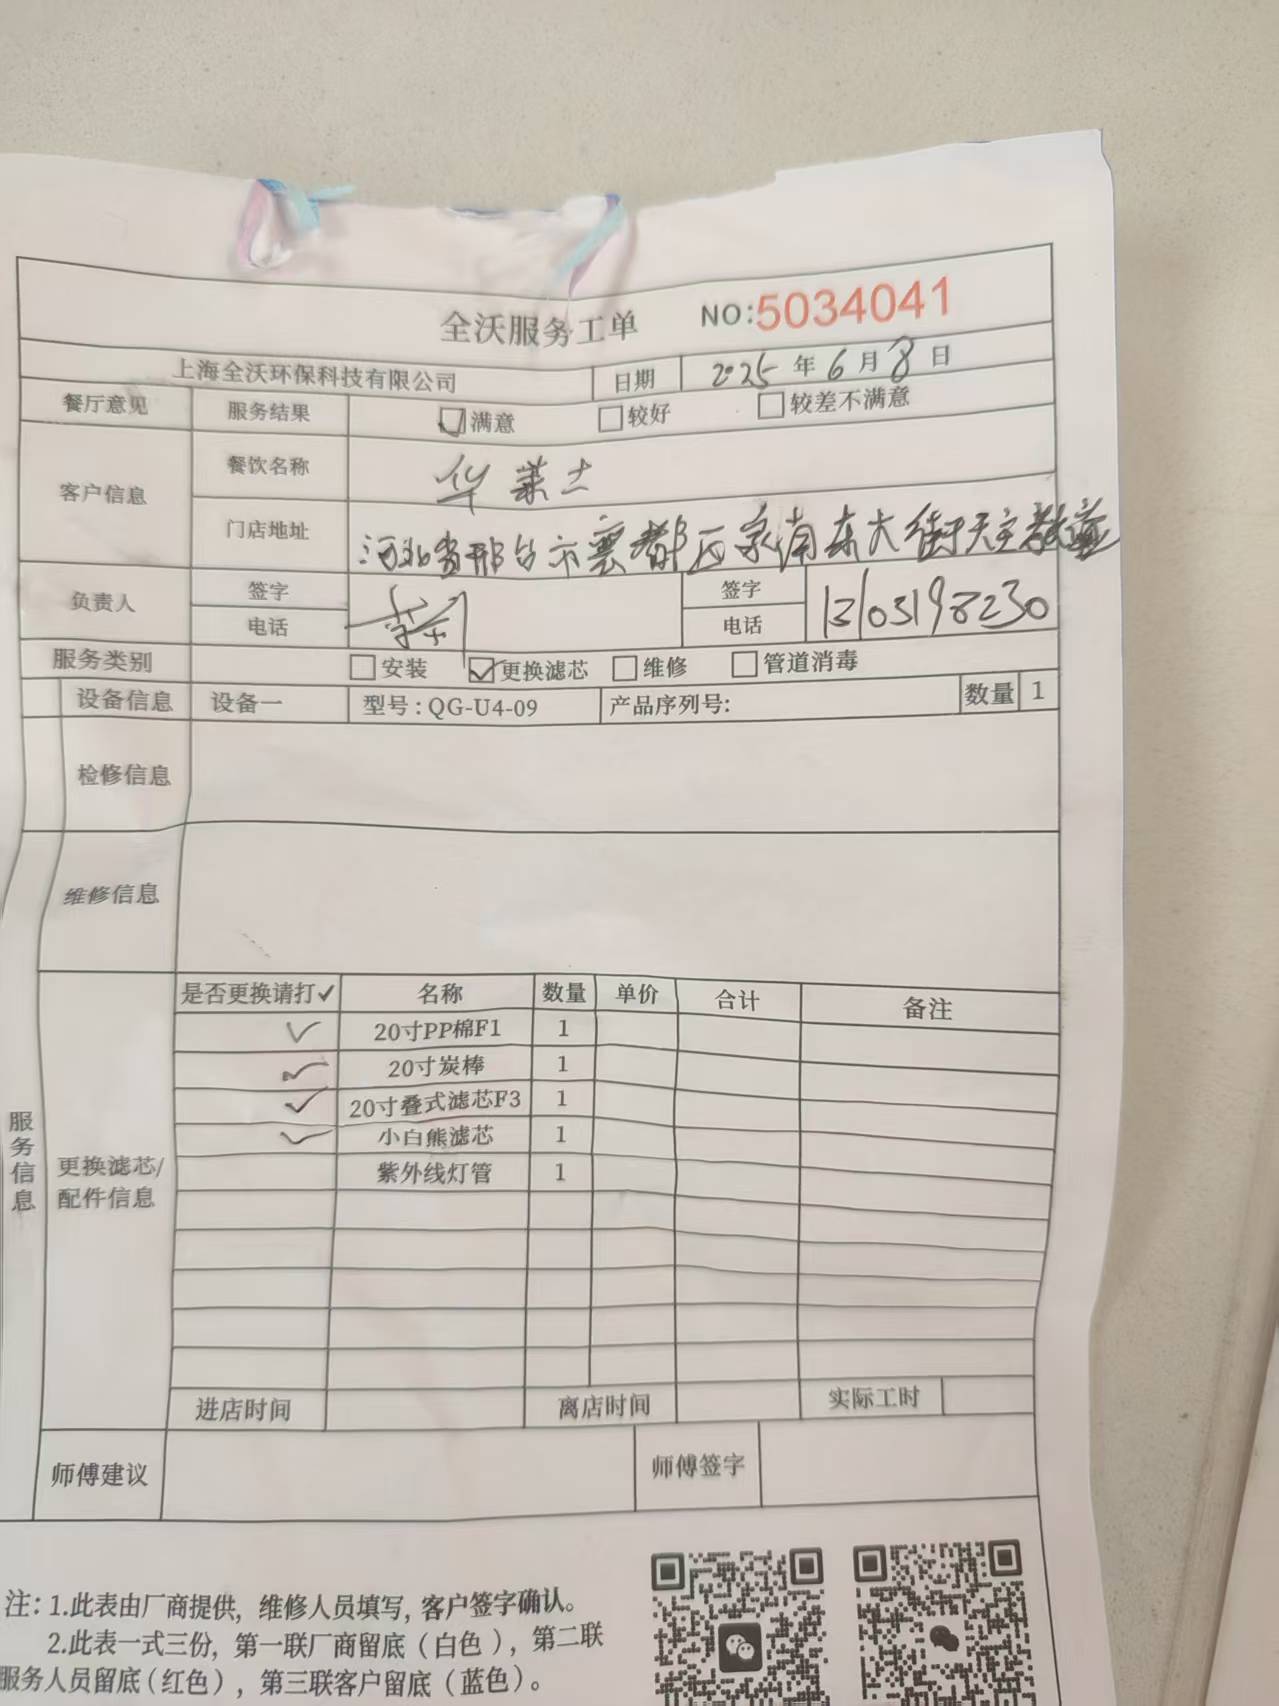 全沃服务工单 NO:5034041
上海全沃环保科技有限公司 日期 2025年6月8日
餐厅意见 服务结果 满意 较好 较差不满意
客户信息 餐饮名称 华莱士
门店地址 河北省邢台市襄都区泉南东大街天主教堂
负责人 签字 签字
电话 电话 13103198230
服务类别 安装 更换滤芯 维修 管道消毒
设备信息 设备一 型号：QG-U4-09 产品序列号: 数量 1
检修信息
维修信息
服务信息
更换滤芯/
配件信息
是否更换请打✓ 名称 数量 单价 合计 备注
✓ 20寸PP棉F1 1
✓ 20寸炭棒 1
✓ 20寸叠式滤芯F3 1
✓ 小白熊滤芯 1
紫外线灯管 1
进店时间 离店时间 实际工时
师傅建议 师傅签字
注：1.此表由厂商提供，维修人员填写，客户签字确认。
2.此表一式三份，第一联厂商留底（白色），第二联
服务人员留底（红色），第三联客户留底（蓝色）。